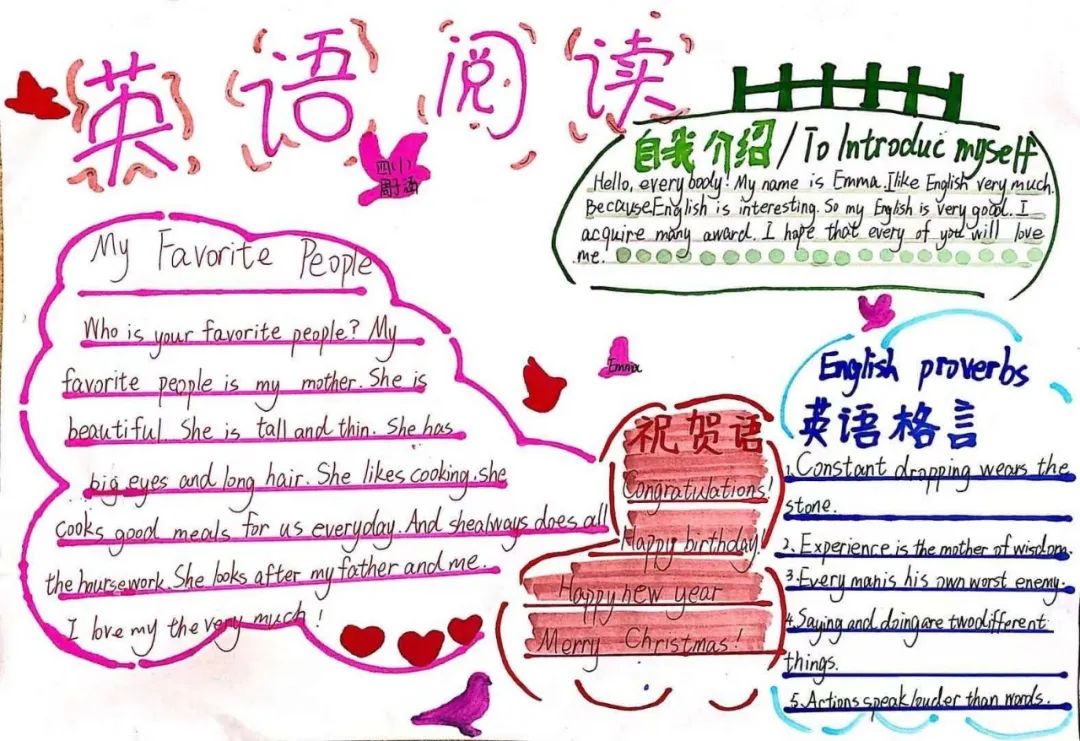 英语阅读
四(1)
自我介绍/To Introduc myself
Hello, everybody! My name is Emma. I like English very much.
Because English is interesting. So my English is very good. I
acquire many award. I hope that every of you will love
me.
My Favorite People
Who is your favorite people? My
favorite people is my mother. She is
beautiful. She is tall and thin. She has
big eyes and long hair. She likes cooking. she
cooks good meals for us everyday. And she always does all
the hoursework. She looks after my father and me.
I love my the very much!
Emma
祝贺语
Congratulations!
Happy birthday!
Happy new year
Merry Christmas!
English proverbs
英语格言
1. Constant dropping wears the
stone.
2. Experience is the mother of wisdom.
3. Every man is his own worst enemy.
4. Saying and doing are two different
things.
5. Actions speak louder than words.